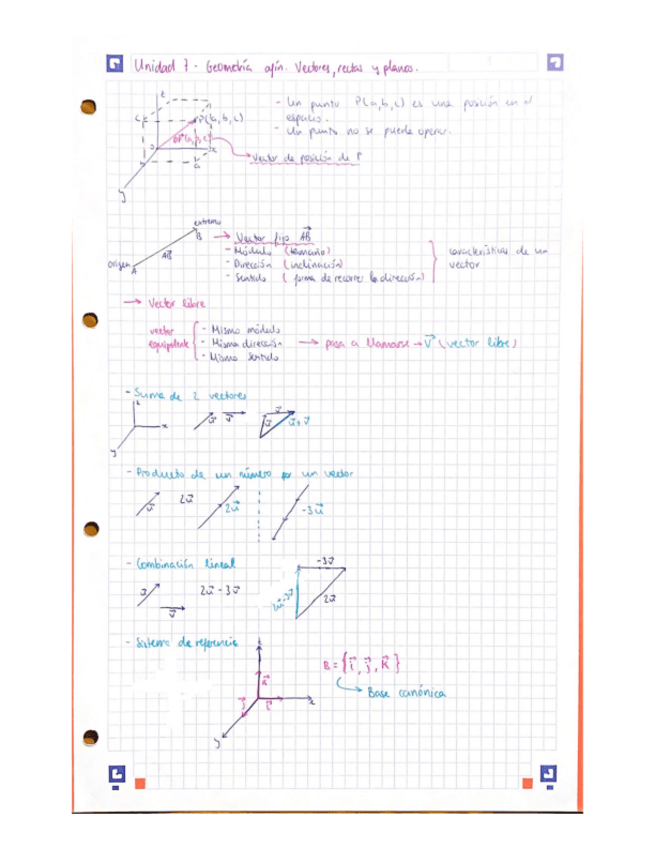 Unidad 7 - Geometría afín. Vectores, rectas y planos.
z
c
P(a,b,c)
OP(a,b,c)
O
x
b
a
y
- Un punto P(a,b,c) es una posición en el
espacio.
- Un punto no se puede operar.
Vector de posición de P
extremo
B
AB
origen
A
→ Vector fijo AB
- Módulo (tamaño)
- Dirección (inclinación)
- Sentido (forma de recorrer la dirección)
características de un
vector
→ Vector libre
vector
equipolente
- Mismo módulo
- Misma dirección
- Mismo sentido
→ pasa a llamarse → V (vector libre)
- Suma de 2 vectores
z
x
y
u
v
v
u
u+v
- Producto de un número por un vector
u
2u
2u
-3u
- Combinación lineal
u
v
2u - 3v
-3v
2u-3v
2u
- Sistema de referencia
z
k
j
i
x
y
B = {i, j, k}
Base canónica